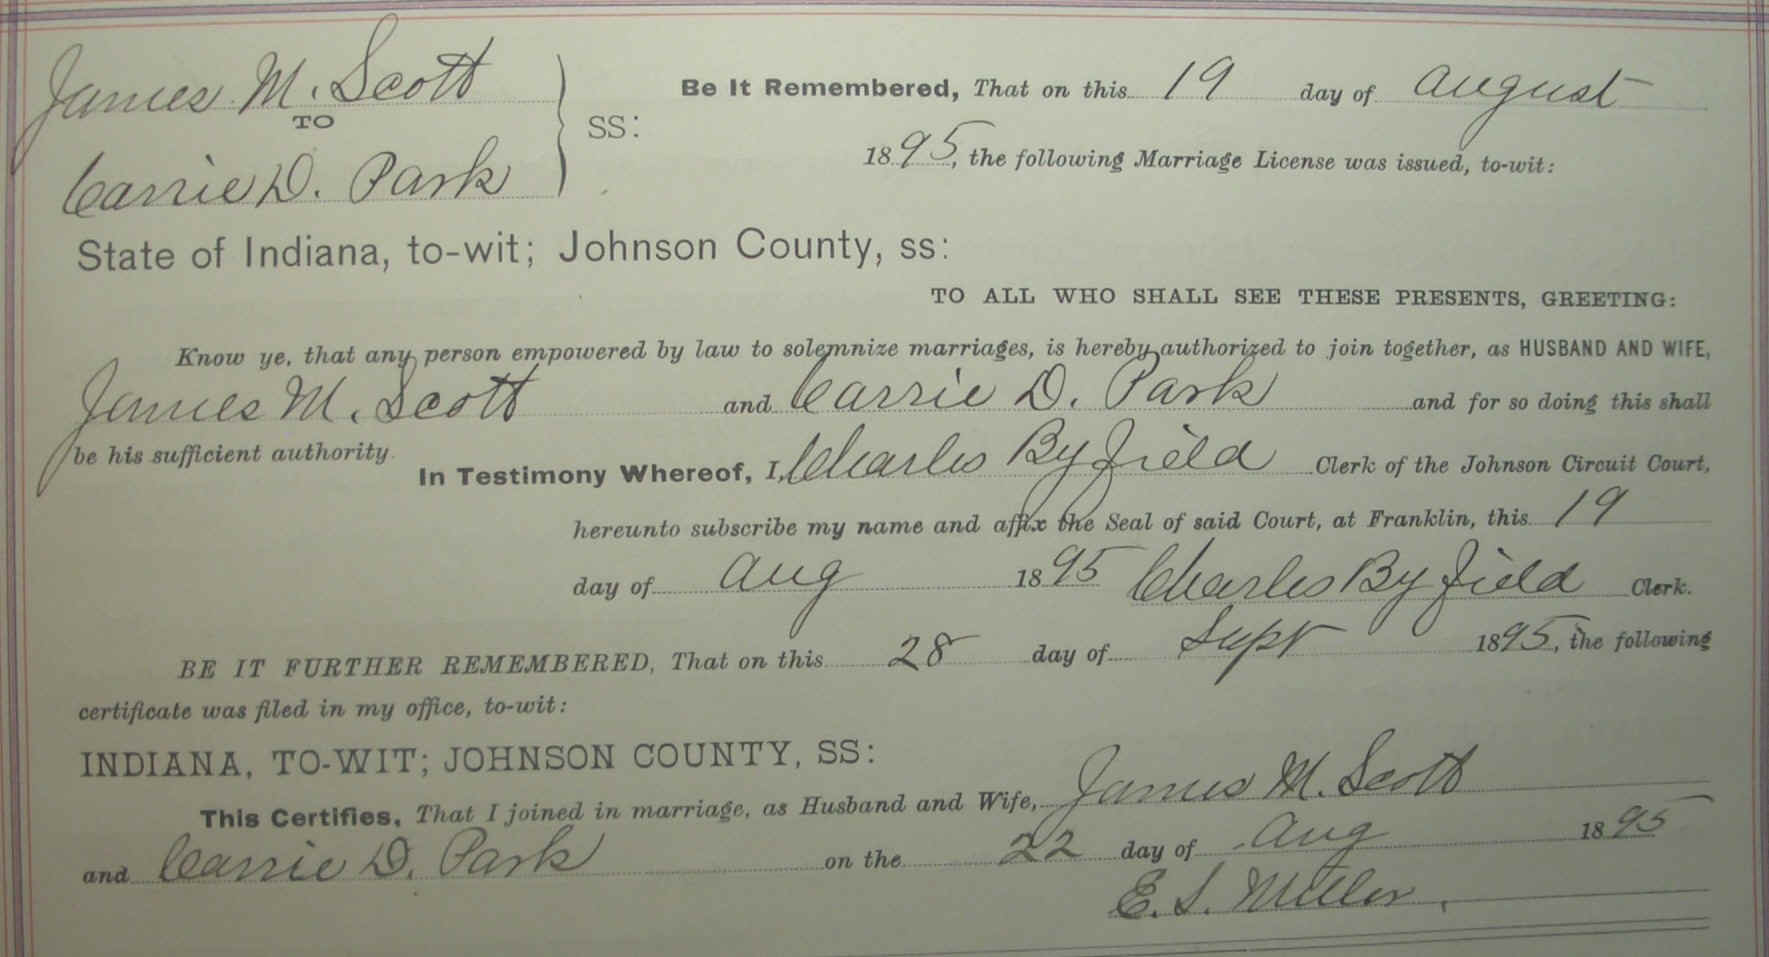 James M. Scott
TO
Carrie D. Park
SS:
Be It Remembered, That on this 19 day of August
1895, the following Marriage License was issued, to-wit:
State of Indiana, to-wit; Johnson County, ss:
TO ALL WHO SHALL SEE THESE PRESENTS, GREETING:
Know ye, that any person empowered by law to solemnize marriages, is hereby authorized to join together, as HUSBAND AND WIFE,
James M. Scott and Carrie D. Park and for so doing this shall
be his sufficient authority.
In Testimony Whereof, I, Charles Byfield Clerk of the Johnson Circuit Court,
hereunto subscribe my name and affix the Seal of said Court, at Franklin, this 19
day of Aug 1895 Charles Byfield Clerk.
BE IT FURTHER REMEMBERED, That on this 28 day of Sept 1895, the following
certificate was filed in my office, to-wit:
INDIANA, TO-WIT; JOHNSON COUNTY, SS:
This Certifies, That I joined in marriage, as Husband and Wife, James M. Scott
and Carrie D. Park on the 22 day of Aug 1895
E. S. Miller